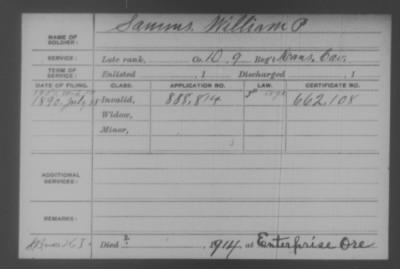 Samms, William P
NAME OF SOLDIER:
SERVICE: Late rank, Co. D, 9 Reg't Kans. Cav.
TERM OF SERVICE: Enlisted , 1 Discharged , 1
DATE OF FILING. CLASS. APPLICATION NO. LAW. CERTIFICATE NO.
1890. July Invalid, 888,814 662,108
Widow,
Minor,
ADDITIONAL SERVICES:
REMARKS:
Died , 1914, at Enterprise Ore